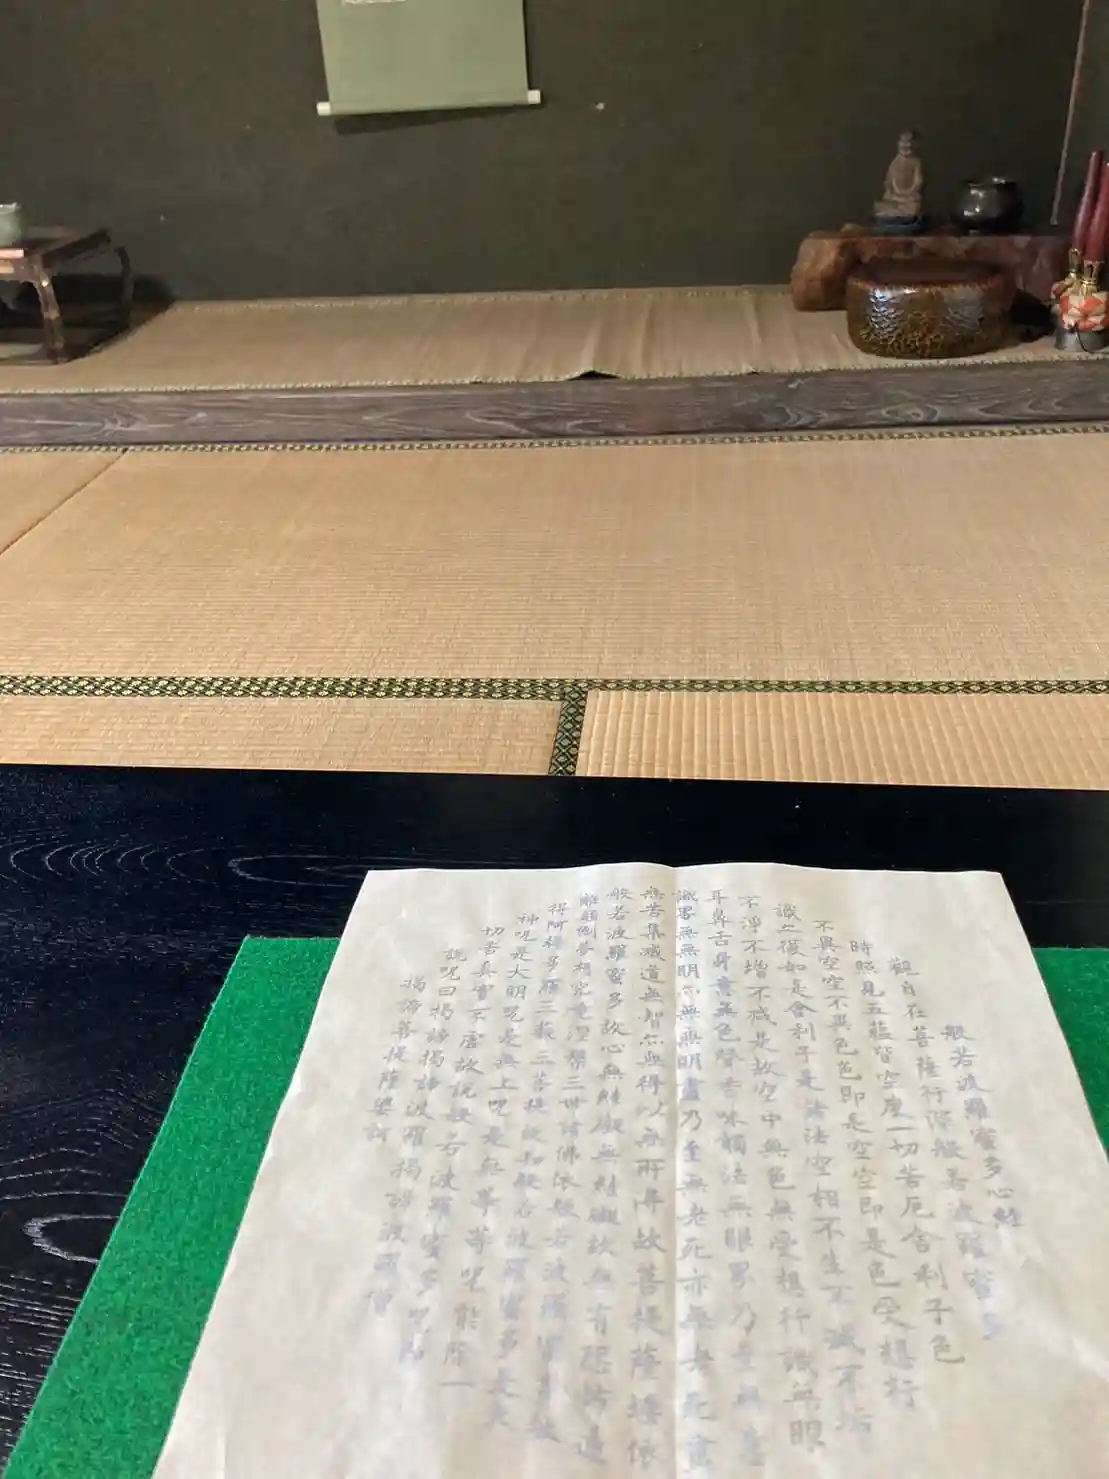 般若波羅蜜多心経
觀自在菩薩行深般若波羅蜜多
時照見五蘊皆空度一切苦厄舎利子色
不異空空不異色色即是空空即是色受想行
識亦復如是舎利子是諸法空相不生不滅不垢
不淨不増不减是故空中無色無受想行識無眼
耳鼻舌身意無色聲香味觸法無眼界乃至無意
識界無無明亦無無明盡乃至無老死亦無老死盡
無苦集滅道無智亦無得以無所得故菩提薩埵依
般若波羅蜜多故心無罣礙無罣礙故無有恐怖遠
離顛倒夢想究竟涅槃三世諸佛依般若波羅蜜多故
得阿耨多羅三藐三菩提故知般若波羅蜜多是大
神呪是大明呪是無上呪是無等等呪能除一
切苦真實不虚故説般若波羅蜜多呪即
説呪曰揭諦揭諦波羅揭諦波羅僧
揭諦菩提薩婆訶